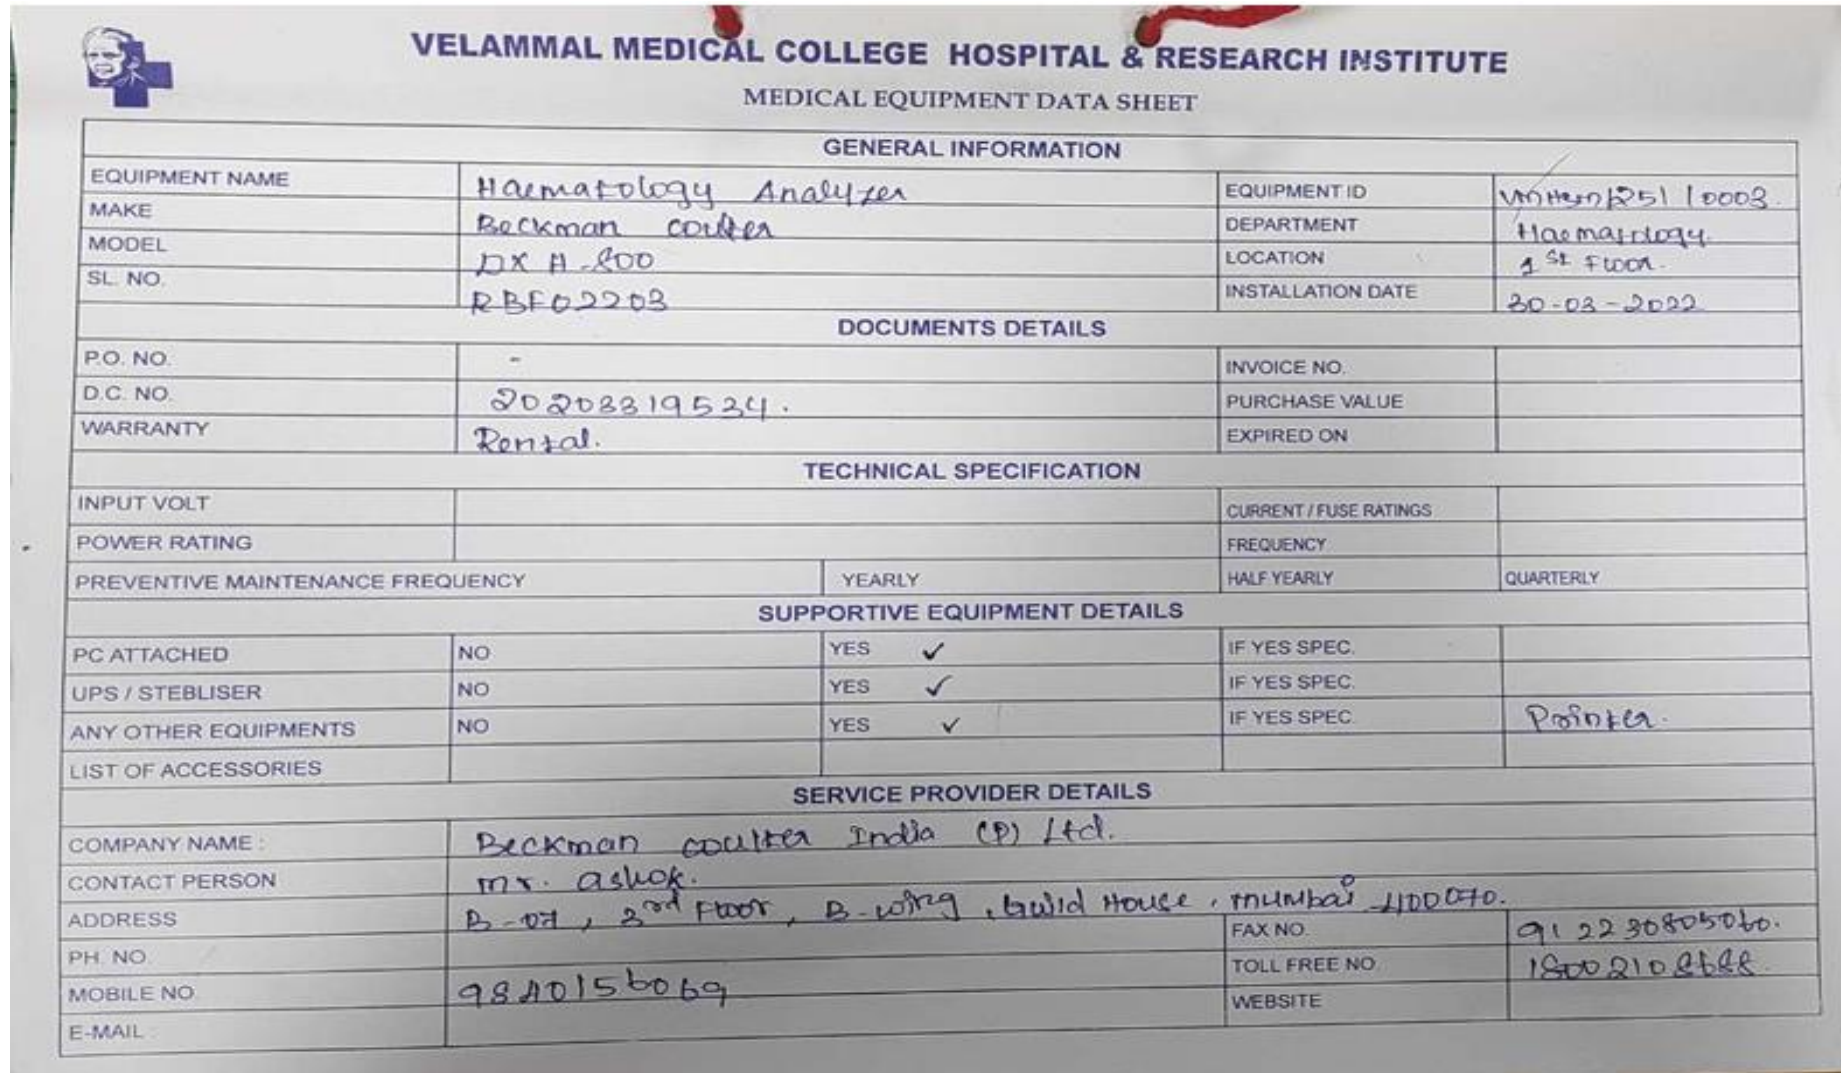 VELAMMAL MEDICAL COLLEGE HOSPITAL & RESEARCH INSTITUTE
MEDICAL EQUIPMENT DATA SHEET
GENERAL INFORMATION
EQUIPMENT NAME Haematology Analyzer EQUIPMENT ID /0003.
MAKE Beckman coulter DEPARTMENT Haematology.
MODEL DX H-800 LOCATION 1st Floor.
SL. NO. RBF02203 INSTALLATION DATE 30-03-2022
DOCUMENTS DETAILS
P.O. NO. - INVOICE NO.
D.C. NO. 20203319534. PURCHASE VALUE
WARRANTY Rental. EXPIRED ON
TECHNICAL SPECIFICATION
INPUT VOLT CURRENT / FUSE RATINGS
POWER RATING FREQUENCY
PREVENTIVE MAINTENANCE FREQUENCY YEARLY HALF YEARLY QUARTERLY
SUPPORTIVE EQUIPMENT DETAILS
PC ATTACHED NO YES ✓ IF YES SPEC.
UPS / STEBLISER NO YES ✓ IF YES SPEC.
ANY OTHER EQUIPMENTS NO YES ✓ IF YES SPEC. Printer.
LIST OF ACCESSORIES
SERVICE PROVIDER DETAILS
COMPANY NAME : Beckman coulter India (P) Ltd.
CONTACT PERSON Mr. ashok.
ADDRESS B-07, 3rd Floor, B-wing, House, mumbai 400070.
PH. NO. FAX NO. 91 22 30805060.
MOBILE NO. 9840156069 TOLL FREE NO. 18002108688.
E-MAIL : WEBSITE